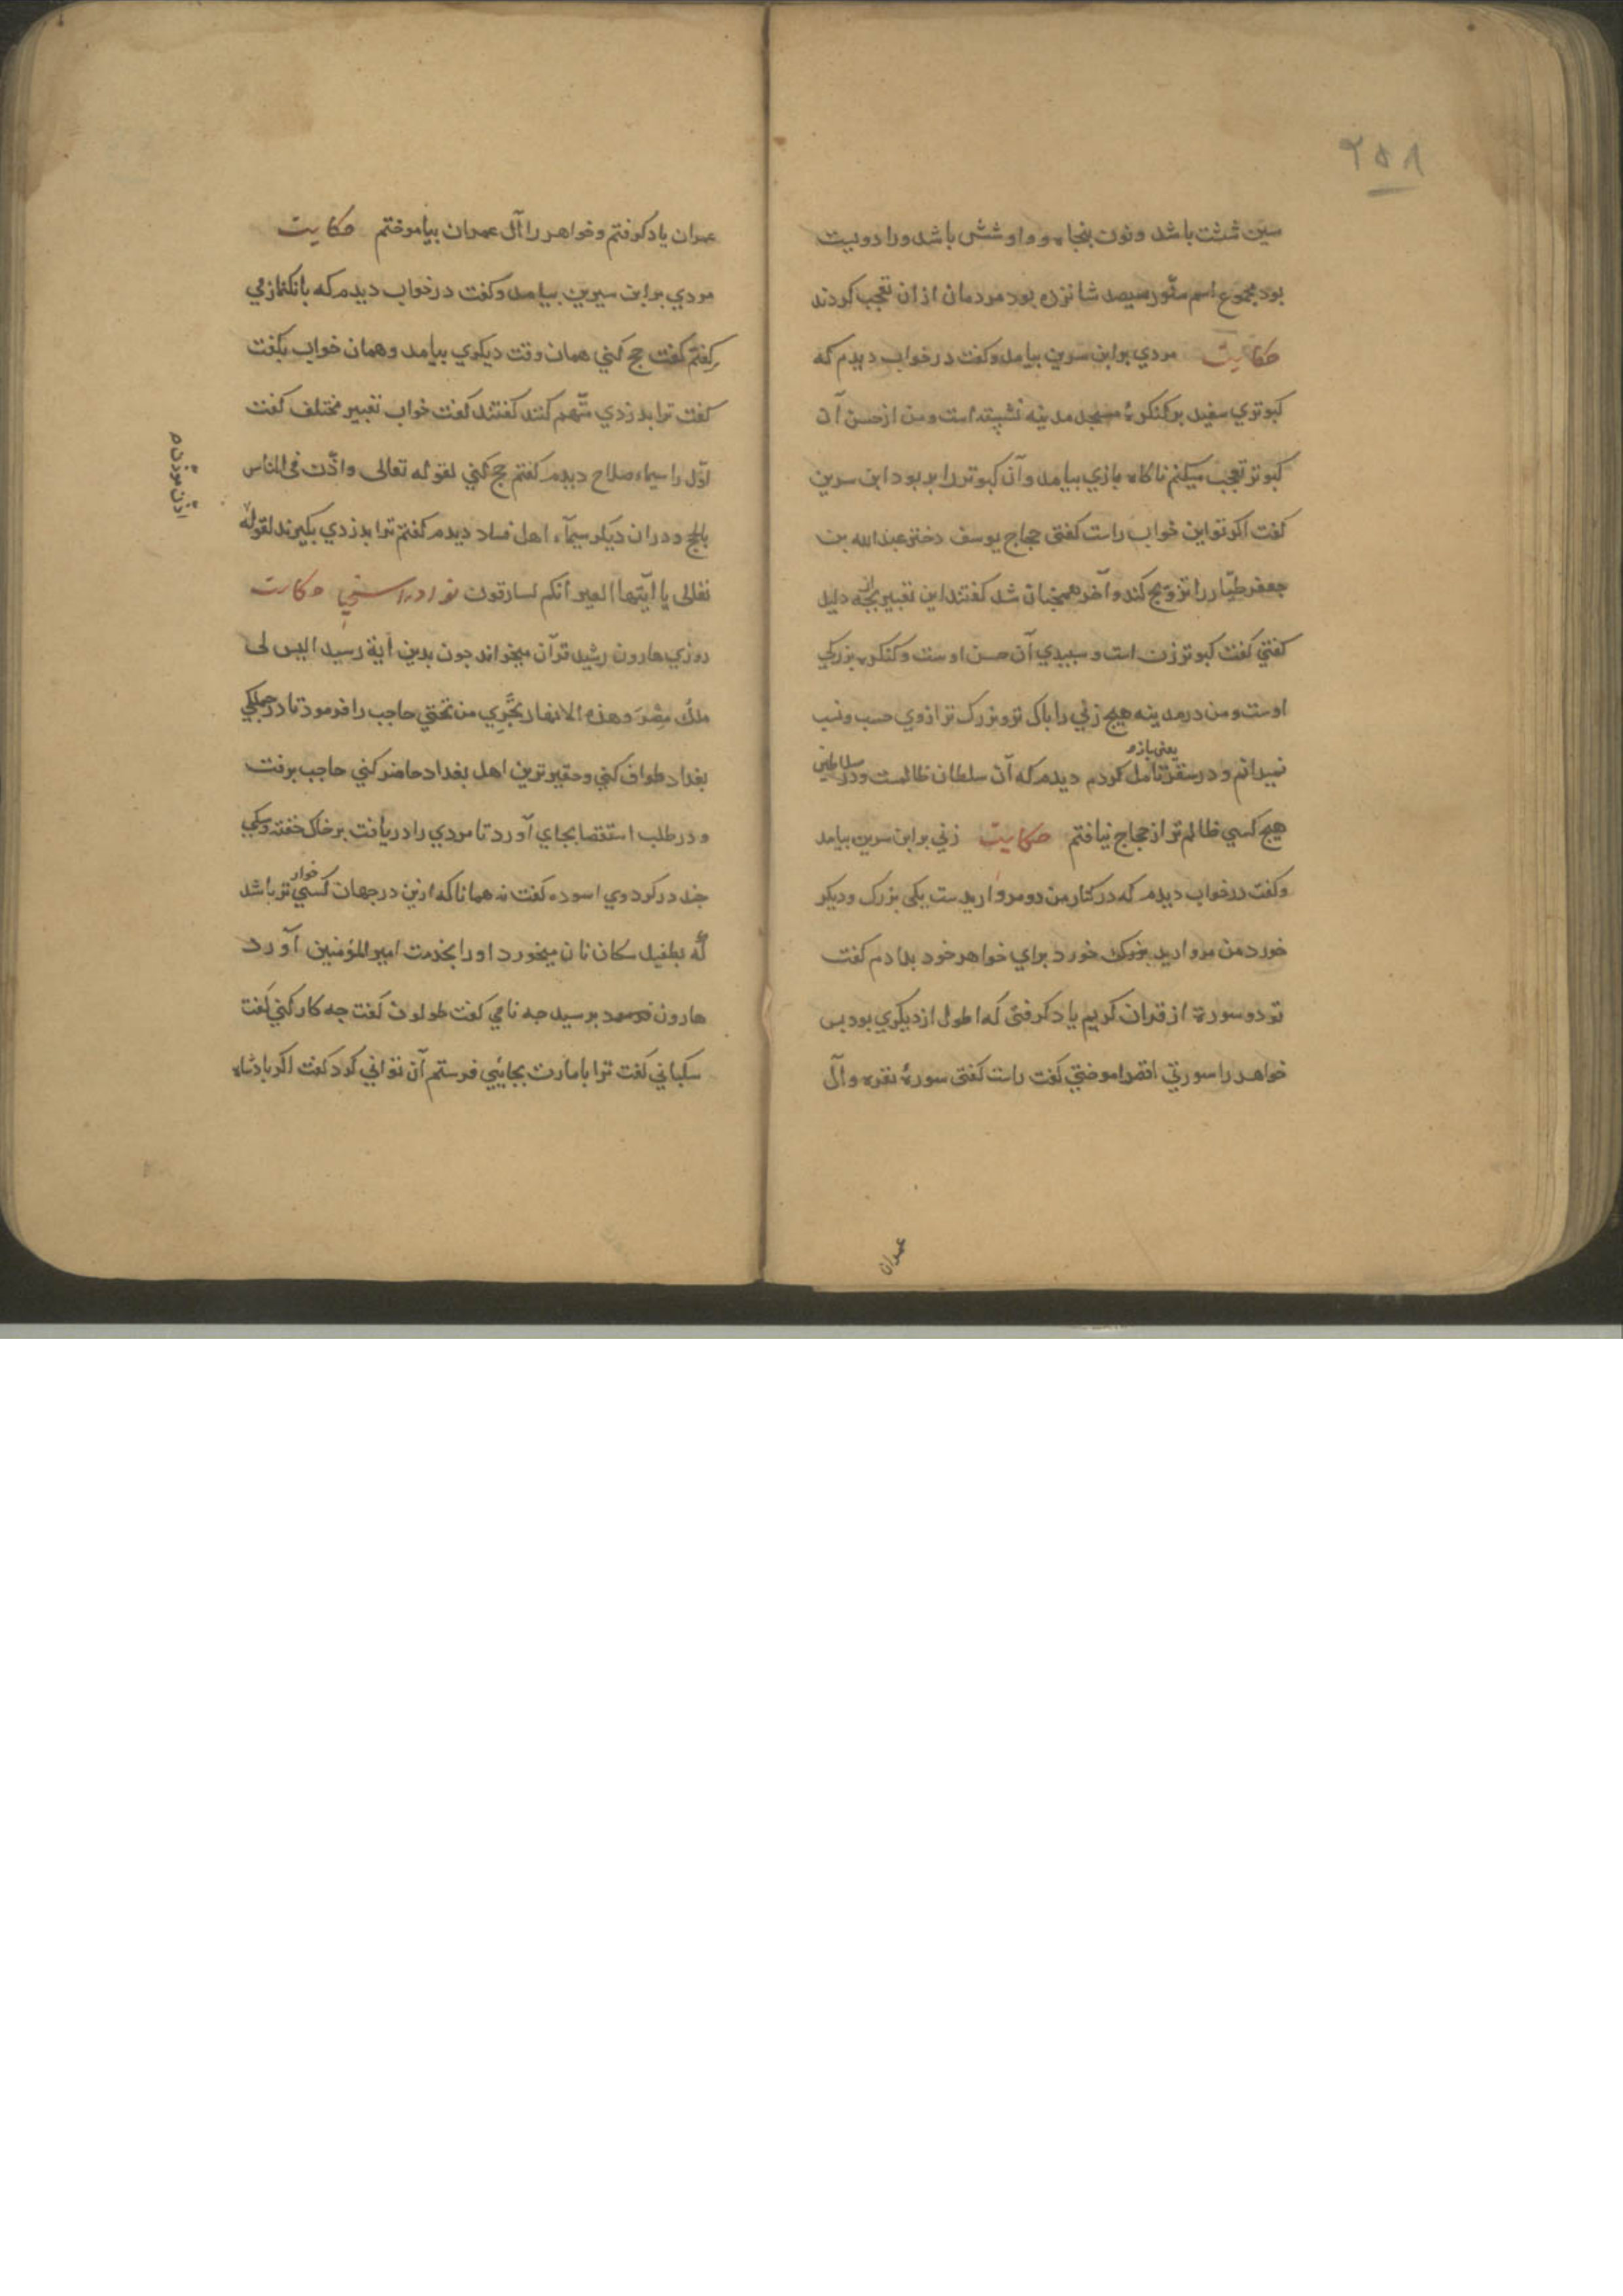 ۲۵۸
سین شثت باشد و نون پنجاه و واو شش باشد و را دویست
بود مجموع اسم سنّور سیصد شانزده بود مردمان ازان تعجب کردند
حکایت مردی بر ابن سرین بیامد و کفت در خواب دیدم که
کبوتری سفید بر کنکرهٔ مسجد مدینه نشسته است و من از حسن آن
کبوتر تعجب میکنم ناکاه بازی بیامد و آن کبوتر را بر بود ابن سرین
کفت اکر تو این خواب راست کفتی حجاج یوسف دختر عبد الله بن
جعفر طیّار را تزویج کند و آخر همچنان شد کفتند این تعبیر بچه دلیل
کفتی کفت کبوتر زن است و سبیدی آن حسن اوست و کنکره بزرکی
اوست و من در مدینه هیچ زنی را باک تر و بزرک تر ازوی حسب و نسب
یعنی بازه
نمیدانم و در سقر تامل کردم دیدم که آن سلطان ظالمست و در سلاطین
هیچ کسی ظالم تر از حجاج نیافتم حکایت زنی بر ابن سرین بیامد
و کفت در خواب دیدم که در کنار من دو مرواریدست یکی بزرک و دیکر
خورد من مروارید بزرک خورد برای خواهر خود بدادم کفت
تو دو سورة از قران کریم یاد کرفتی که اطول از دیکری بود بس
خواهر را سورتی اقصر اموختی کفت راست کفتی سورهٔ بقره و آل
عمران
عمران یاد کرفتم و خواهر را آل عمران بیاموختم حکایت
مردی بر ابن سیرین بیامد و کفت در خواب دیدم که بانکنماز می
کفتم کفت حج کنی همان وقت دیکری بیامد و همان خواب بکفت
کفت ترا بدزدی متّهم کنند کفتند کفت خواب تعبیر مختلف کفت
اوّل را سیماء صلاح دیدم کفتم حج کنی لقوله تعالی واذّن فی الناس
بالحج و دران دیکر سیمآء اهل فساد دیدم کفتم ترا بدزدی بکیرند لقوله
تعالی یا ایّتها العیر انکم لسارقون حکایت
روزی هارون رشید قرآن میخواند جون بدین آیة رسید الیس لی
ملک مصر و هذه الانهار تجری من تحتی حاجب را فرمود تا در جملکی
بغداد طواف کنی و حقیر ترین اهل بغداد حاضر کنی حاجب برفت
و در طلب استقصا بجای آورد تا مردی را دریافت بر خاک خفته و سکی
جند در کرد وی اسوده کفت نه همانا که ازین در جهان کسی خوار تر باشد
که بطفیل سکان نان میخورد او را بخذمت امیر المؤمنین آورد
هارون برسید جه نامی کفت طولون کفت جه کار کنی کفت
سکبانی کفت ترا بامارت بجایی فرستم آن توانی کرد کفت اکر بادشاه